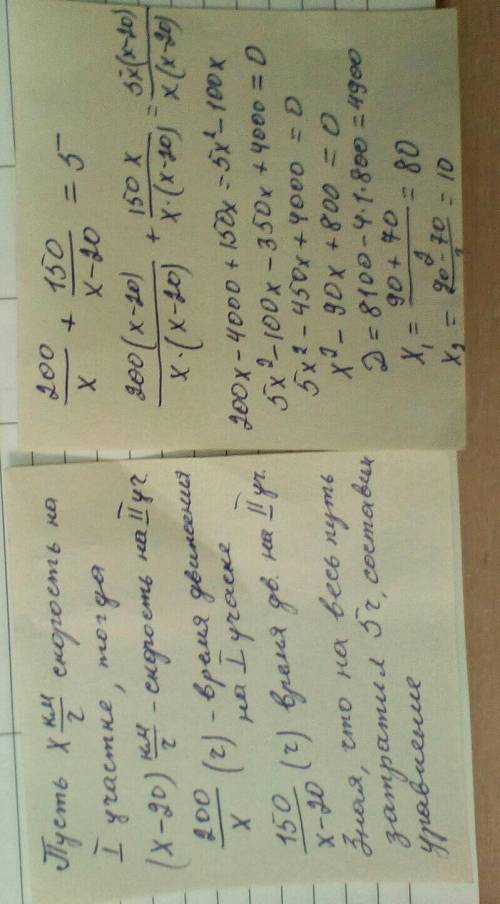 Пусть x км/ч скорость на
I участке, тогда
(x-20) км/ч - скорость на II уч
200/x (ч) - время движения
на I учаске
150/x-20 (ч) время дв. на II уч.
Зная, что на весь путь
затратил 5ч, составим
уравнение
200/x + 150/x-20 = 5
200(x-20)/x·(x-20) + 150x/x·(x-20) = 5x(x-20)/x(x-20)
200x-4000+150x=5x²-100x
5x²-100x-350x+4000=0
5x²-450x+4000=0
x²-90x+800=0
D=8100-4·1·800=4900
x₁ = 90+70/2 = 80
x₂ = 90-70/2 = 10